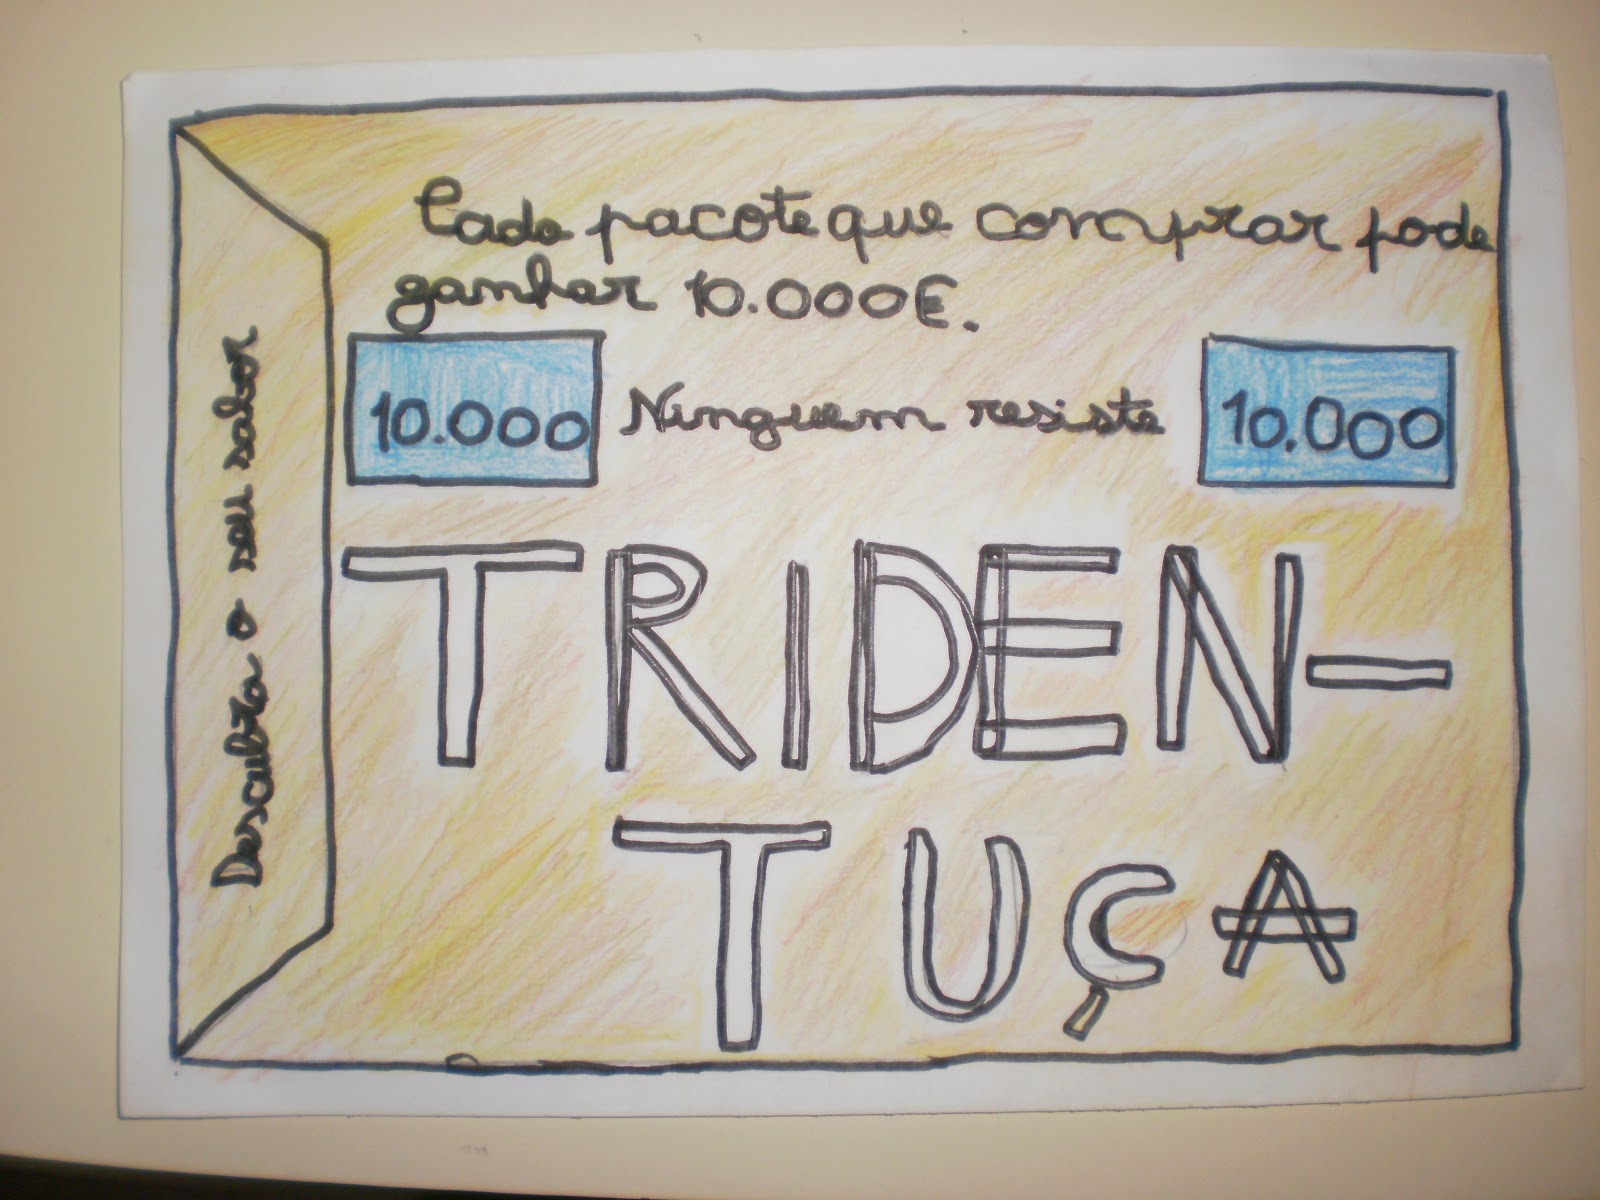 Cada pacote que comprar pode
ganhar 10.000€.
10.000 Ninguem resiste 10.000
TRIDEN-
TUÇA
Descubra o seu sabor